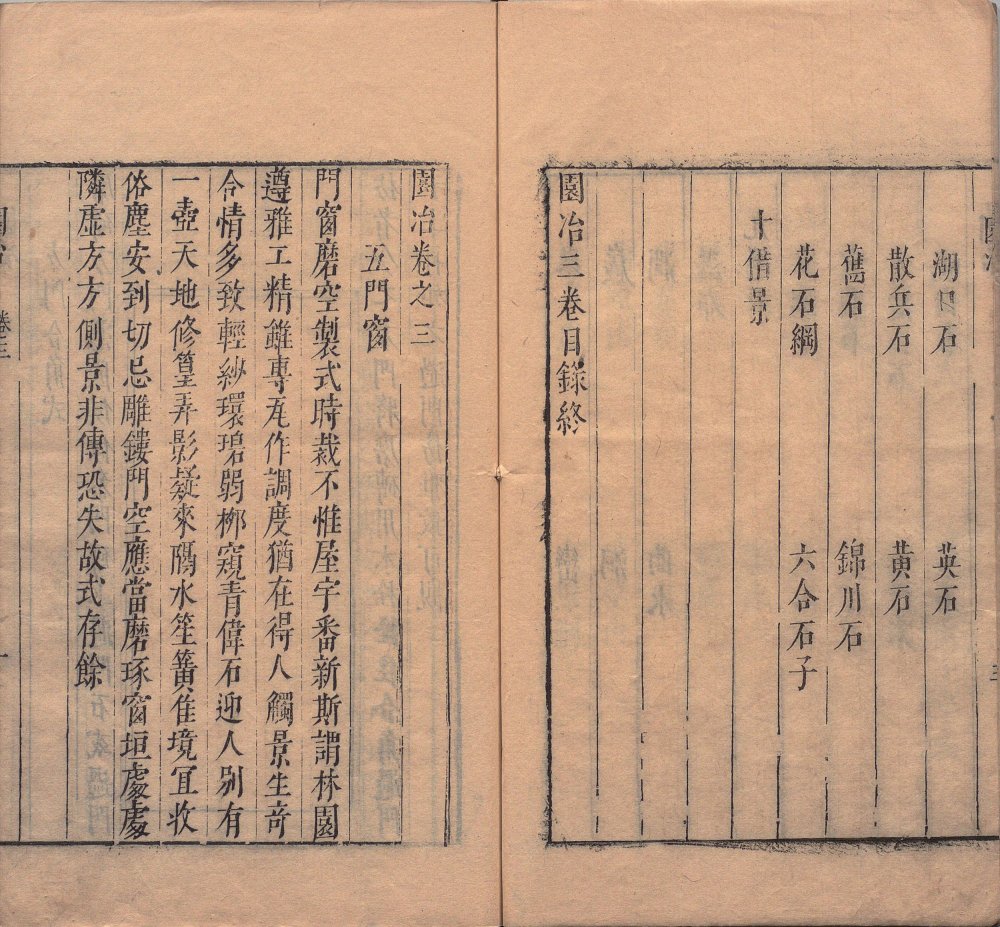 湖口石 英石
散兵石 黃石
舊石 錦川石
花石綱 六合石子
十借景
園冶三卷目錄終
園冶卷之三
五門窗
門窗磨空製式時裁不惟屋宇番新斯謂林園
遵雅工精雖專瓦作調度猶在得人觸景生奇
含情多致輕紗環碧弱栁窺青偉石迎人別有
一壺天地修篁弄影疑來隔水笙簧佳境宜收
俗塵安到切忌雕鏤門空應當磨琢窗垣處處
隣虛方方側景非傳恐失故式存餘